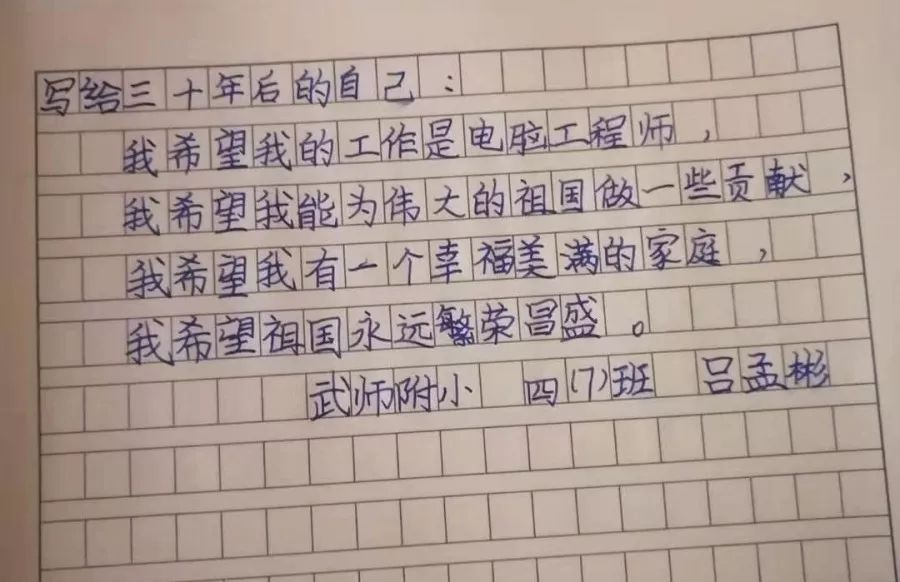 写给三十年后的自己：
我希望我的工作是电脑工程师，
我希望我能为伟大的祖国做一些贡献，
我希望我有一个幸福美满的家庭，
我希望祖国永远繁荣昌盛。
武师附小 四(7)班 吕孟彬